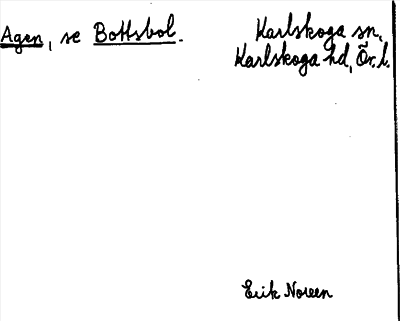 Agen, se Bottsbol.
Karlskoga sn,
Karlskoga hd, Ör. l.
Erik Noreen